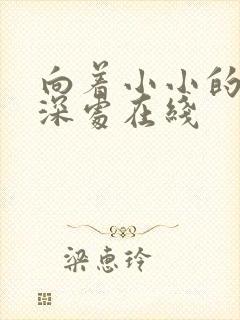 向着小小的
深处在线
梁惠玲